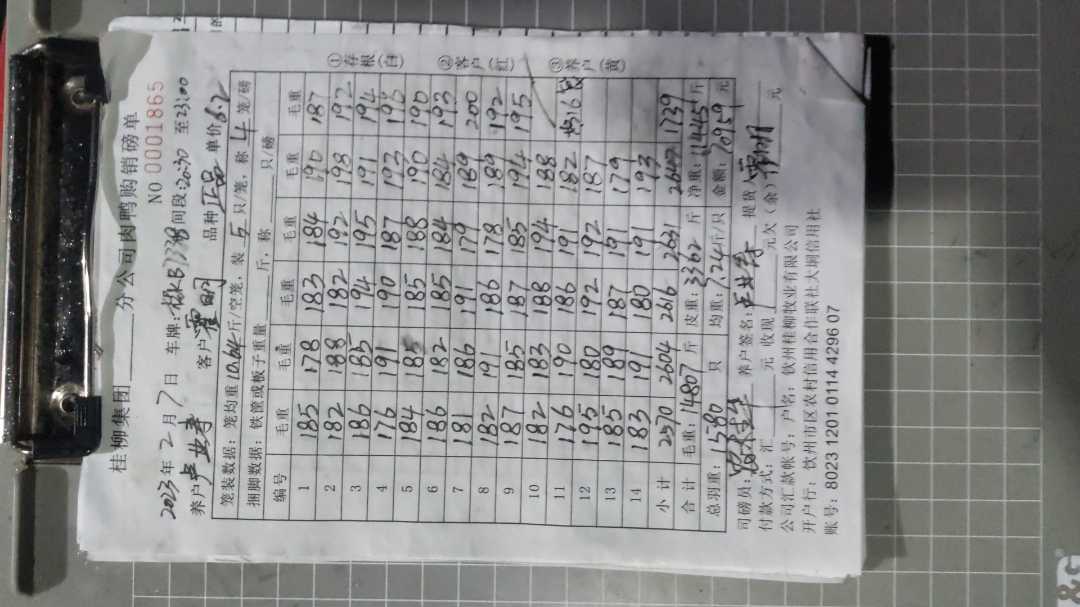 桂柳集团 分公司肉鸭购销磅单
NO 0001865
2023年2月7日 车牌: 间段20:30至23:00
养户 客户 品种 正品 单价6.2
笼装数据:笼均重10.64斤/空笼,装5只/笼,称4笼/磅
捆脚数据:铁筐或板子重量 斤,称 只/磅
编号 毛重 毛重 毛重 毛重 毛重 毛重
1 185 178 183 184 190 187
2 182 188 182 192 198 192
3 186 185 194 195 191 194
4 176 191 190 187 193 196
5 184 185 185 188 190 190
6 186 182 185 184 184 193
7 181 186 191 179 189 200
8 182 191 186 178 189 192
9 187 185 187 185 194 195
10 182 183 188 194 188
11 176 190 186 191 182 共316
12 195 180 192 192 187
13 185 189 187 191 179
14 183 191 180 191 193
小计 2570 2604 2616 2631 2647 1739
合计 毛重:14807斤 皮重:3362斤 净重:11445斤
总羽重:1580只 均重:7.24斤/只 金额:70959元
司磅员: 养户签名: 提货人
付款方式:汇 元 收现 元欠(余) 元
公司汇款帐号:户名:钦州桂柳牧业有限公司
开户行:钦州市区农村信用合作联社大垌信用社
账号:8023 1201 0114 4296 07
①存根(白) ②客户(红) ③养户(黄)
&G